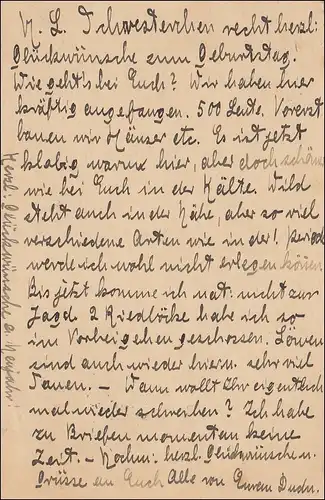 N. L. Schwesterchen recht herzl:
Glückwünsche zum Geburtstag!
Wie geht's bei Euch? Wir haben hier
kräftig angefangen. 500 Leute. Vorerst
bauen wir Häuser etc. Es ist jetzt
klabig warm hier, aber doch schöner
wie bei Euch in der Kälte. Wild
steht auch in der Nähe, aber so viel
verschiedene Arten wie in der! Period
werde ich wohl nicht erlegen können
Bis jetzt komme ich nat: nicht zur
Jagd 2 Riedböcke habe ich so
im Vorbeigehen geschossen. Löwen
sind auch wieder hierm. sehr viel
Tauen. – Wann wollt Ihr eigentlich
mal wieder schreiben? Ich habe
zu Briefen momentan keine
Zeit. – Nochm: herzl. Glückwünsche u.
Grüsse an Euch Alle von Eurem
Herzl: Glückwünsche a. Neujahr!